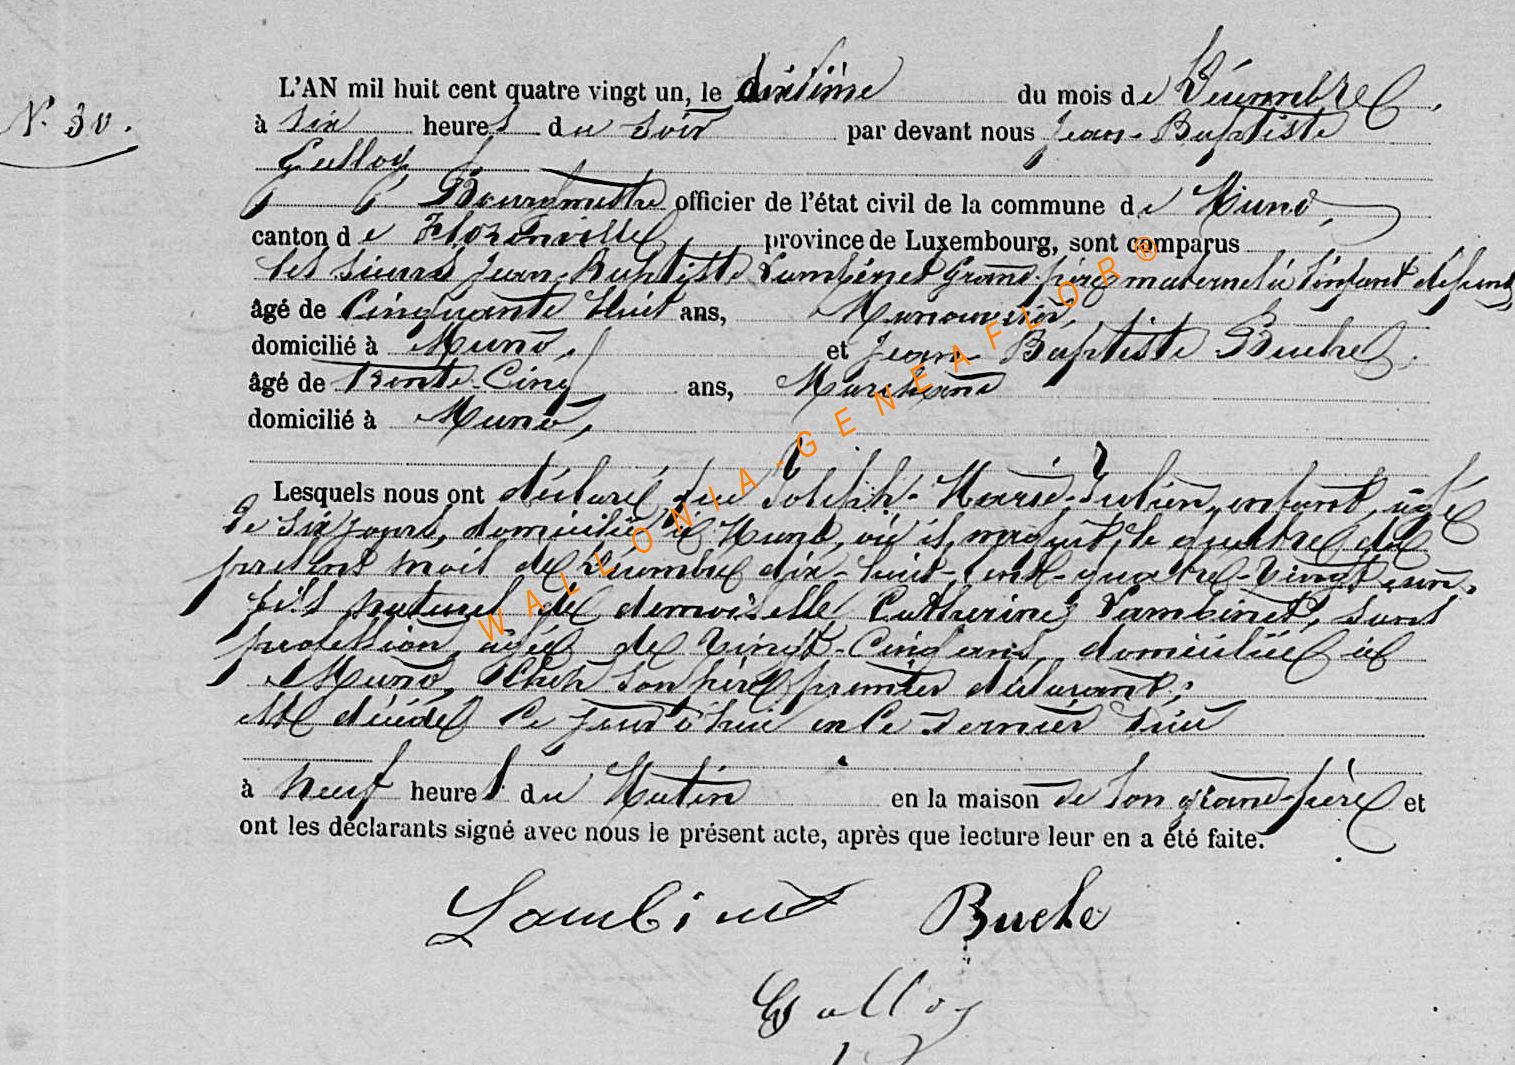 N° 30.
L'AN mil huit cent quatre vingt un, le dixième du mois de Décembre,
à six heures du soir par devant nous Jean-Baptiste
Gulloy,
Bourgmestre officier de l'état civil de la commune de Muno,
canton de Florenville, province de Luxembourg, sont comparus
les sieurs Jean-Baptiste Lambinet Grand-père maternel à l'enfant défunt,
âgé de Cinquante huit ans, Manouvrier,
domicilié à Muno, et Jean-Baptiste Buche,
âgé de trente-Cinq ans, Marchand
domicilié à Muno,
Lesquels nous ont déclaré que Joseph-Marie-Julien, enfant, âgé
de six jours, domicilié à Muno, où il naquit, le quatre du
présent mois de Décembre dix-huit-cent-quatre-vingt un,
fils naturel de demoiselle Catherine Lambinet, sans
profession, âgée de Vingt-Cinq ans, domiciliée à
Muno, Chez son père premier déclarant;
est décédé ce jourd'hui en ce dernier lieu
à neuf heures du Matin en la maison de son grand-père et
ont les déclarants signé avec nous le présent acte, après que lecture leur en a été faite.
Lambinet Buche
Gulloy
WALLONIA-GENEAFLOR®